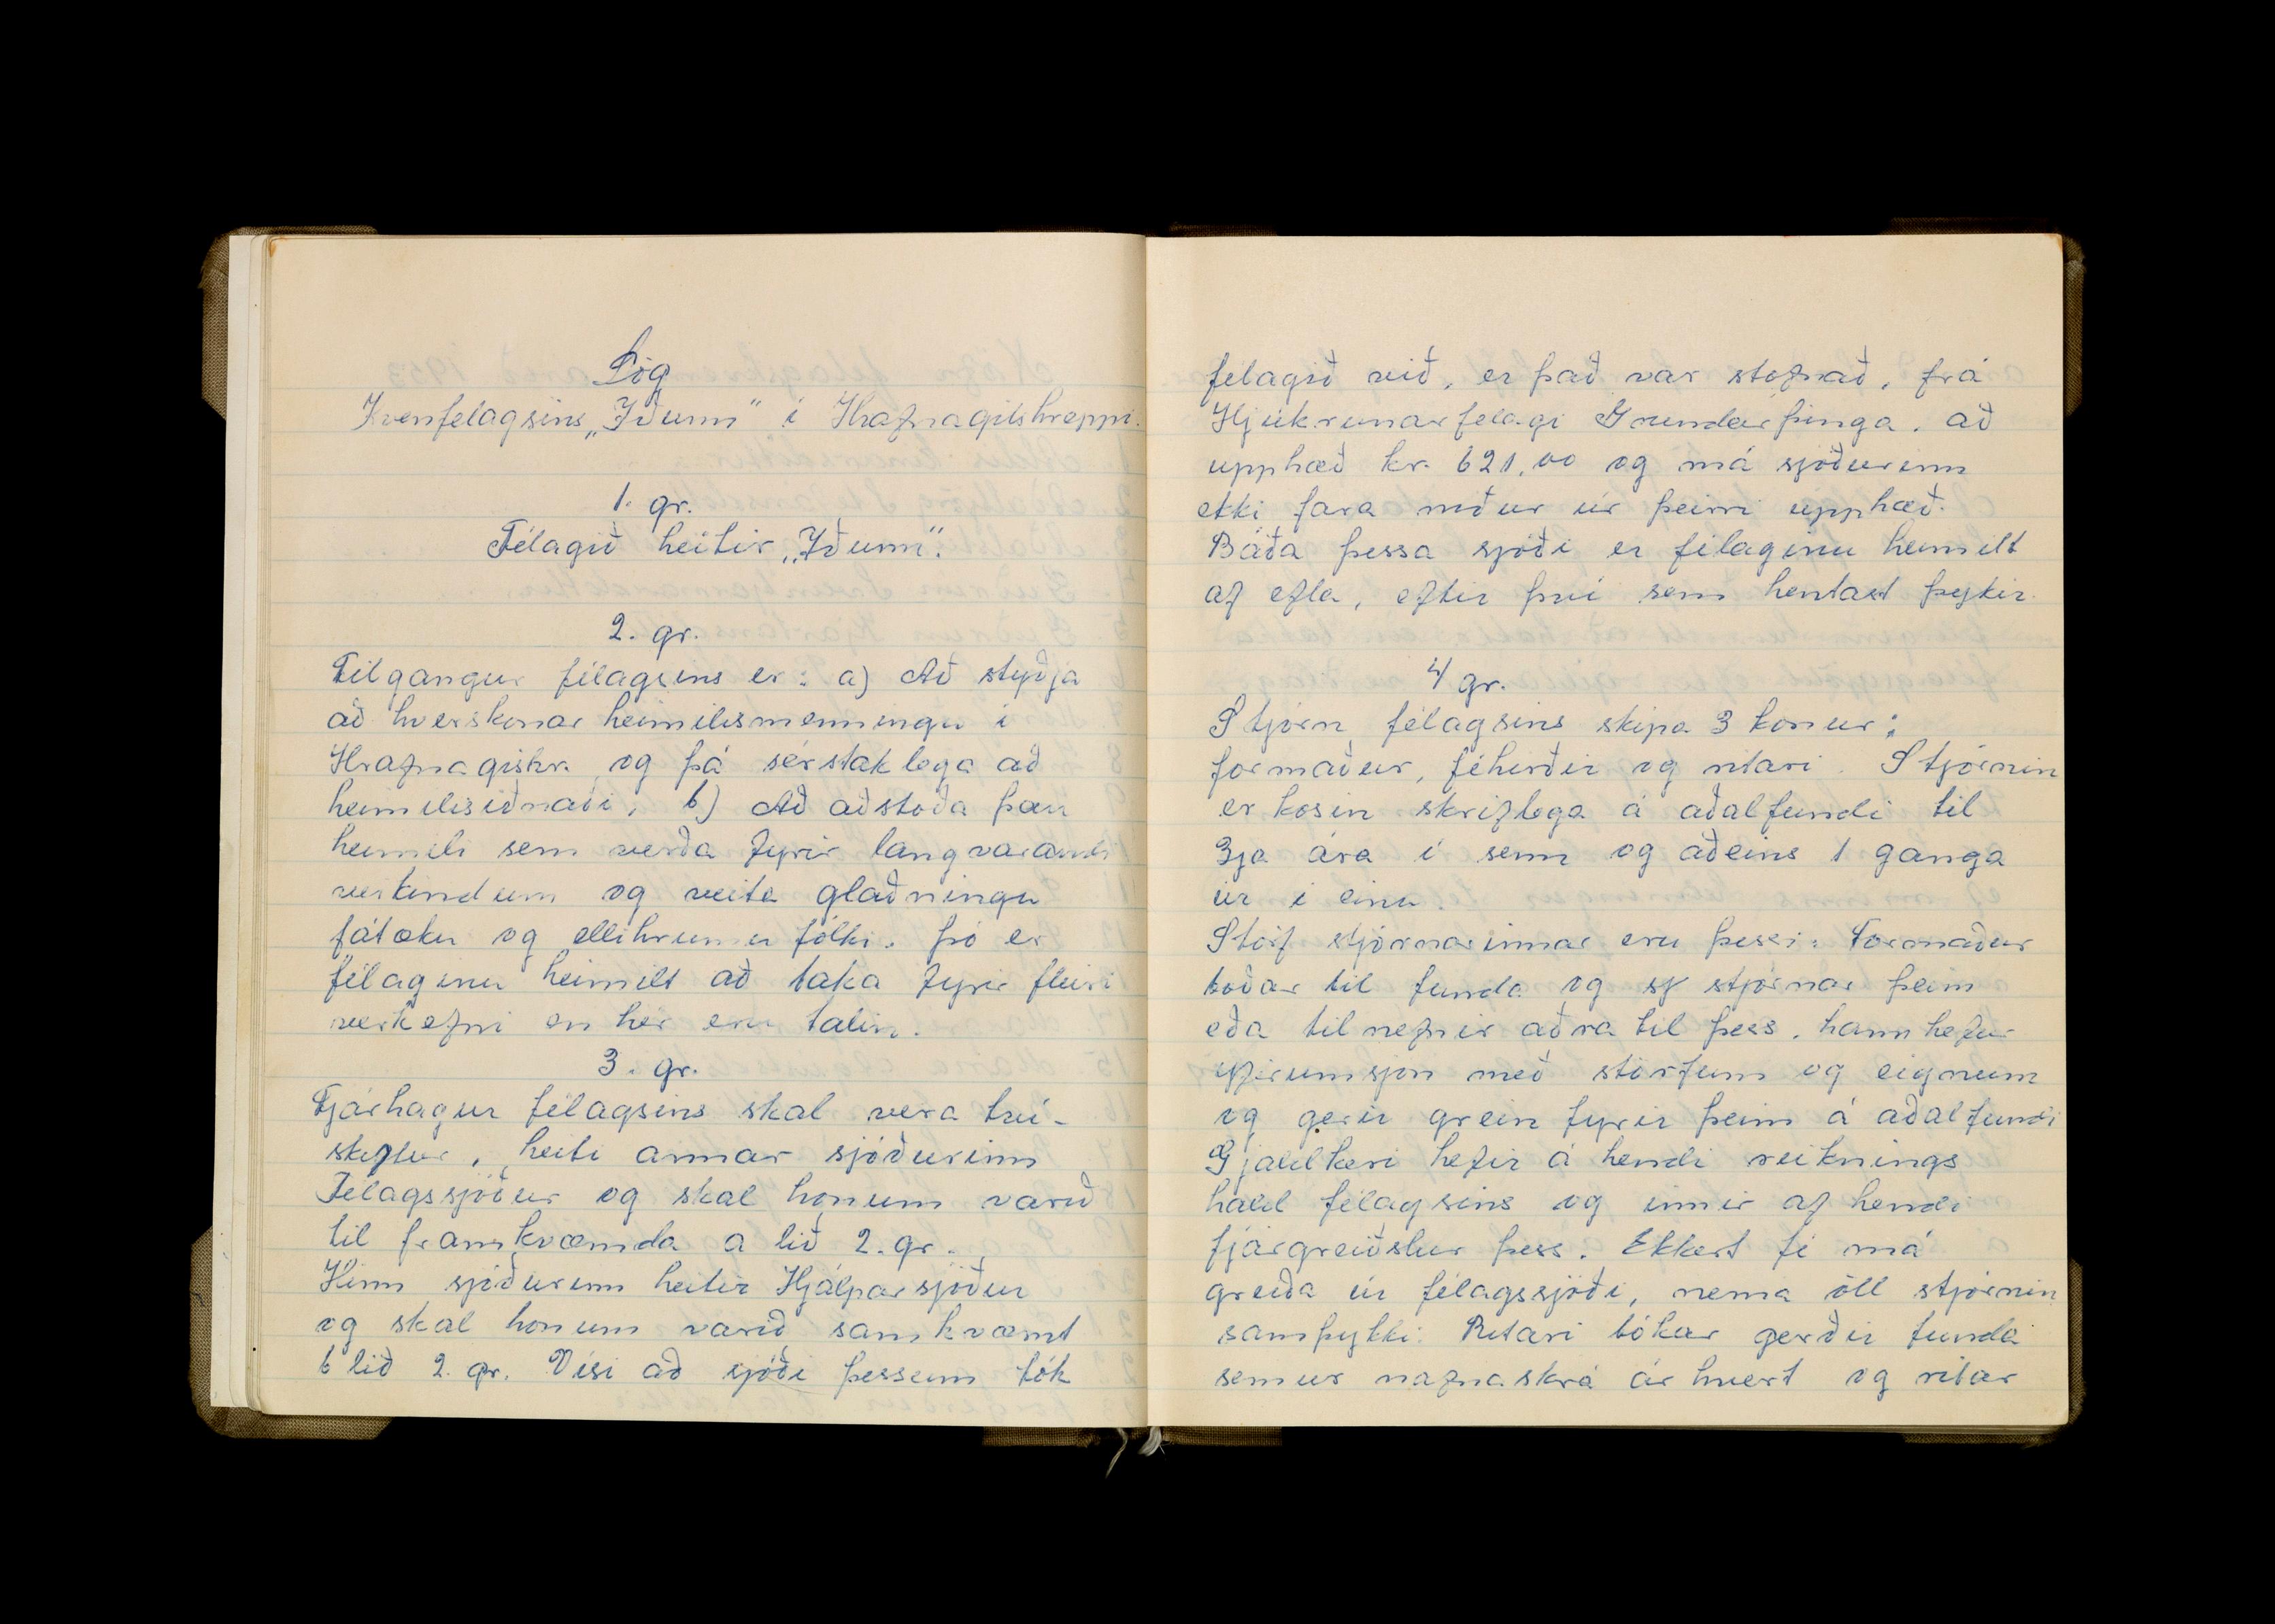 Lög
Kvenfélagsins „Iðunn" í Hrafnagilshreppi.
1. gr.
Félagið heitir „Iðunn".
2. gr.
Tilgangur félagsins er: a) Að styðja
að hverskonar heimilismenningu í
Hrafnagishr. og þá sérstaklega að
heimilisiðnaði. b) Að aðstoða þau
heimili sem verða fyrir langvarandi
veikindum og veita glaðningu
fátæku og ellihrumu fólki. Þó er
félaginu heimilt að taka fyrir fleiri
verkefni en hér eru talin.
3. gr.
Fjárhagur félagsins skal vera tví-
skiptur, heiti annar sjóðurinn
Félagssjóður og skal honum varið
til framkvæmda a lið 2. gr.
Hinn sjóðurinn heitir Hjálparsjóður
og skal honum varið samkvæmt
b lið 2. gr. Vísi að sjóði þessum tók
félagið við, er það var stofnað, frá
Hjúkrunarfélagi Grundarþinga, að
upphæð kr. 621,00 og má sjóðurinn
ekki fara niður úr þeirri upphæð.
Báða þessa sjóði er félaginu heimilt
af efla, eftir því sem hentast þykir.
4 gr.
Stjórn félagsins skipa 3 konur:
formaður, féhirðir og ritari. Stjórnin
er kosin skriflega á aðalfundi til
3ja ára í senn og aðeins 1 ganga
úr í einu.
Störf stjórnarinnar eru þessi: Formaður
boðar til funda og sj stjórnar þeim
eða tilnefnir aðra til þess, hann hefur
yfirumsjón með störfum og eignum
og gerir grein fyrir þeim á aðalfundi
Gjaldkeri hefir á hendi reiknings
hald félagsins og innir af hendi
fjárgreiðslur þess. Ekkert fé má
greiða úr félagssjóði, nema öll stjórnin
samþykki. Ritari bókar gerðir funda
semur nafnaskrá ár hvert og ritar